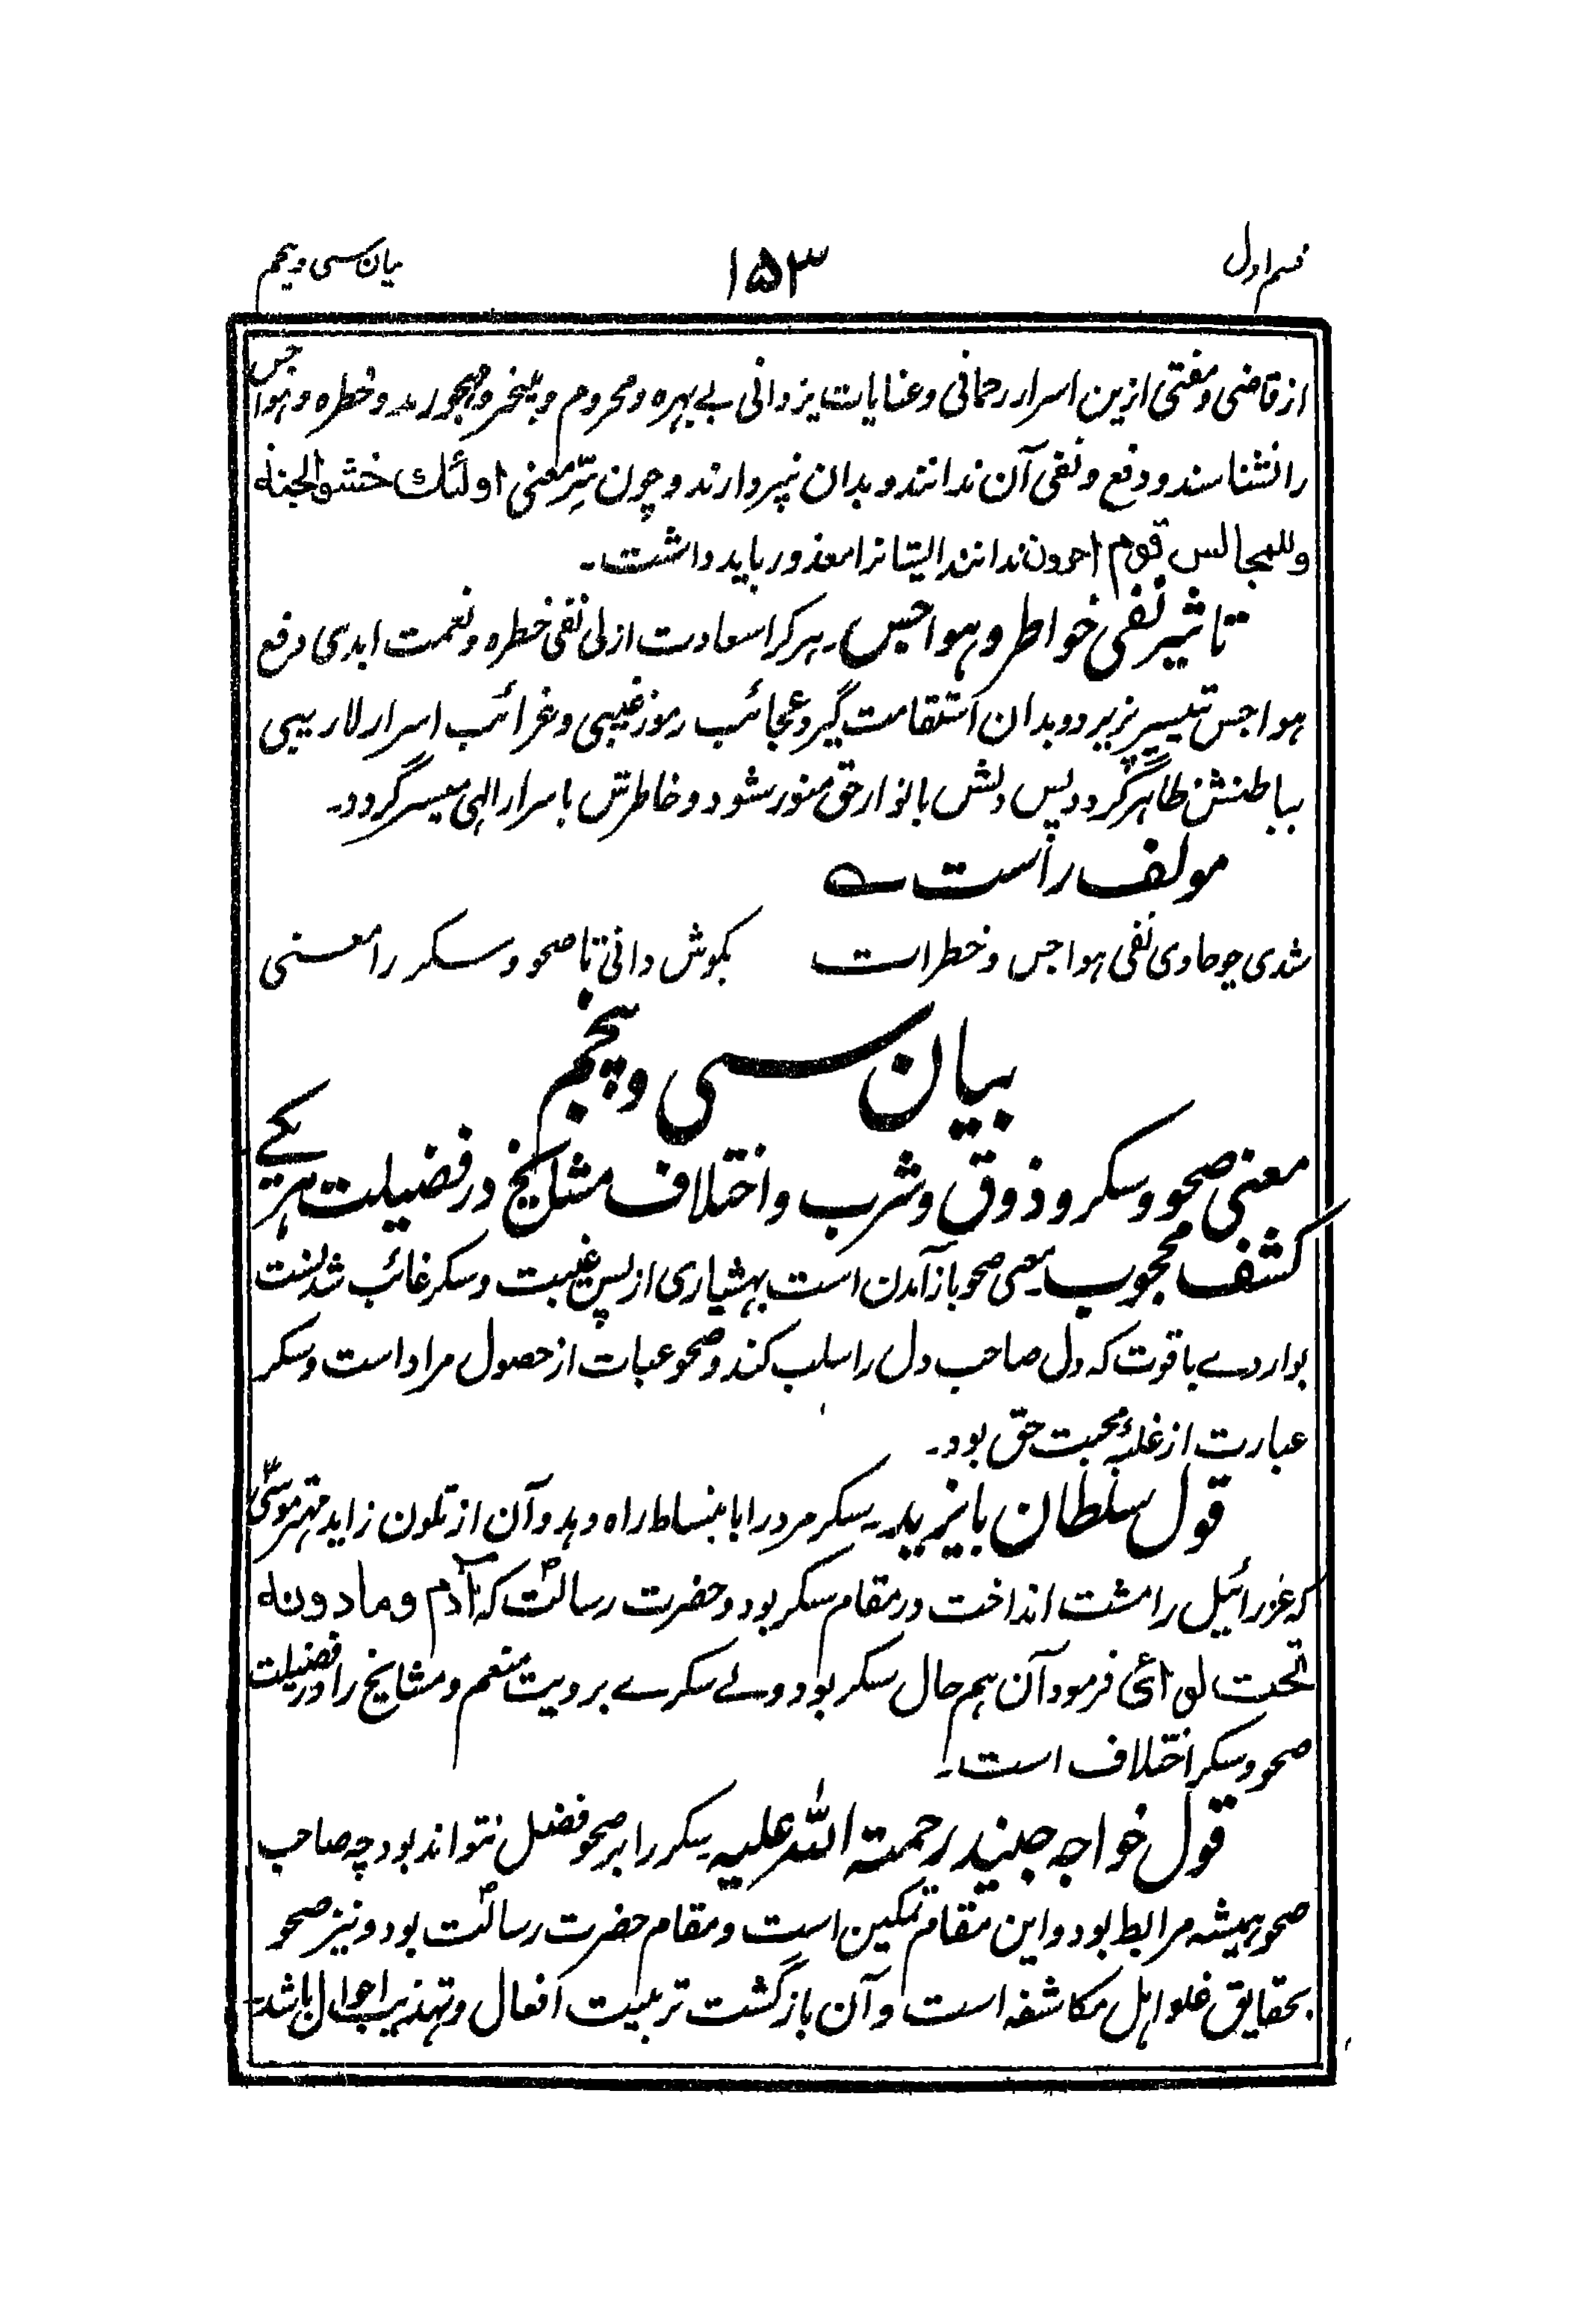 قسم اول
۱۵۳
بیان سی و پنجم
از قاضی و مفتی ازین اسرار رحمانی و عنایات یزدانی بے بهره و محروم و بیخبر و مهجور اند و خطره و هواجس
را نشناسند و دفع و نفی آن ندانند و بدان نپردازند و چون سِرّ معنی اولئك خشو الجنة
وللمجالس قوم اخرون ندانند ایشانرا معذور باید داشت۔
تاثیر نفی خواطر و هواجس۔ هر کرا سعادت ازلی نفی خطره و نعمت ابدی دفع
هواجس تیسیر پزیرد و بدان استقامت گیرد عجائب رموز غیبی و غرائب اسرار لاریبی
بباطنش ظاهر گردد پس دلش بانوار حق منور شود و خاطرش باسرار الهی میسر گردد۔
مولف راست ؎
شدی چو حاوی نفی هواجس و خطرات بکوش دانی تا صحو و سکر را معنی
بیان سی و پنجم
معنی صحو و سکر و ذوق و شرب و اختلاف مشایخ در فضیلت هر یکے
کشف محجوب۔ معنی صحو باز آمدن است بهشیاری از پس غیبت و سکر غائب شدنست
بواردے باقوت که دل صاحب دل را سلب کند و صحو عبات از حصول مراد است و سکر
عبارت از غلبهٔ محبت حق بود۔
قول سلطان بایزید۔ سکر مرد را بابنساط راه دهد و آن از تلون زاید مهتر موسیٰؑ
که عزرائیل را مشت انداخت در مقام سکر بود و حضرت رسالتؐ که آدم و ما دونه
تحت لوائی فرمود آن هم حال سکر بود ولے سکرے برویت منعم و مشایخ را در فضیلت
صحو و سکر اختلاف است۔
قول خواجه جنید رحمتہ اللہ علیہ۔ سکر را بر صحو فضل نتواند بود چه صاحب
صحو همیشه مرابط بود و این مقام تمکین است و مقام حضرت رسالتؐ بود و نیز صحو
بحقایق غلو اهل مکاشفه است و آن بازگشت تربیت افعال و تهذیب احوال باشد۔